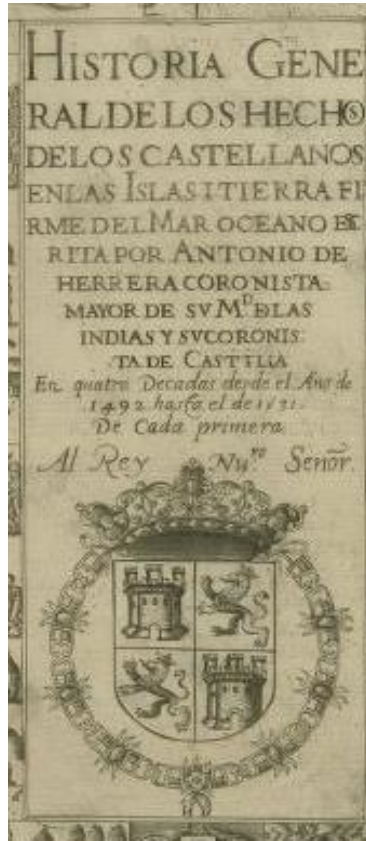 HISTORIA GENE
RAL DE LOS HECHOS
DE LOS CASTELLANOS
EN LAS ISLAS I TIERRA FI
RME DEL MAR OCEANO ESC
RITA POR ANTONIO DE
HERRERA CORONISTA
MAYOR DE SV M.D DE LAS
INDIAS Y SV CORONIS
TA DE CASTILLA
En quatro Decadas desde el Año de
1492 hasta el de 1531.
De Cada primera
Al Rey Nu.ro Señor.